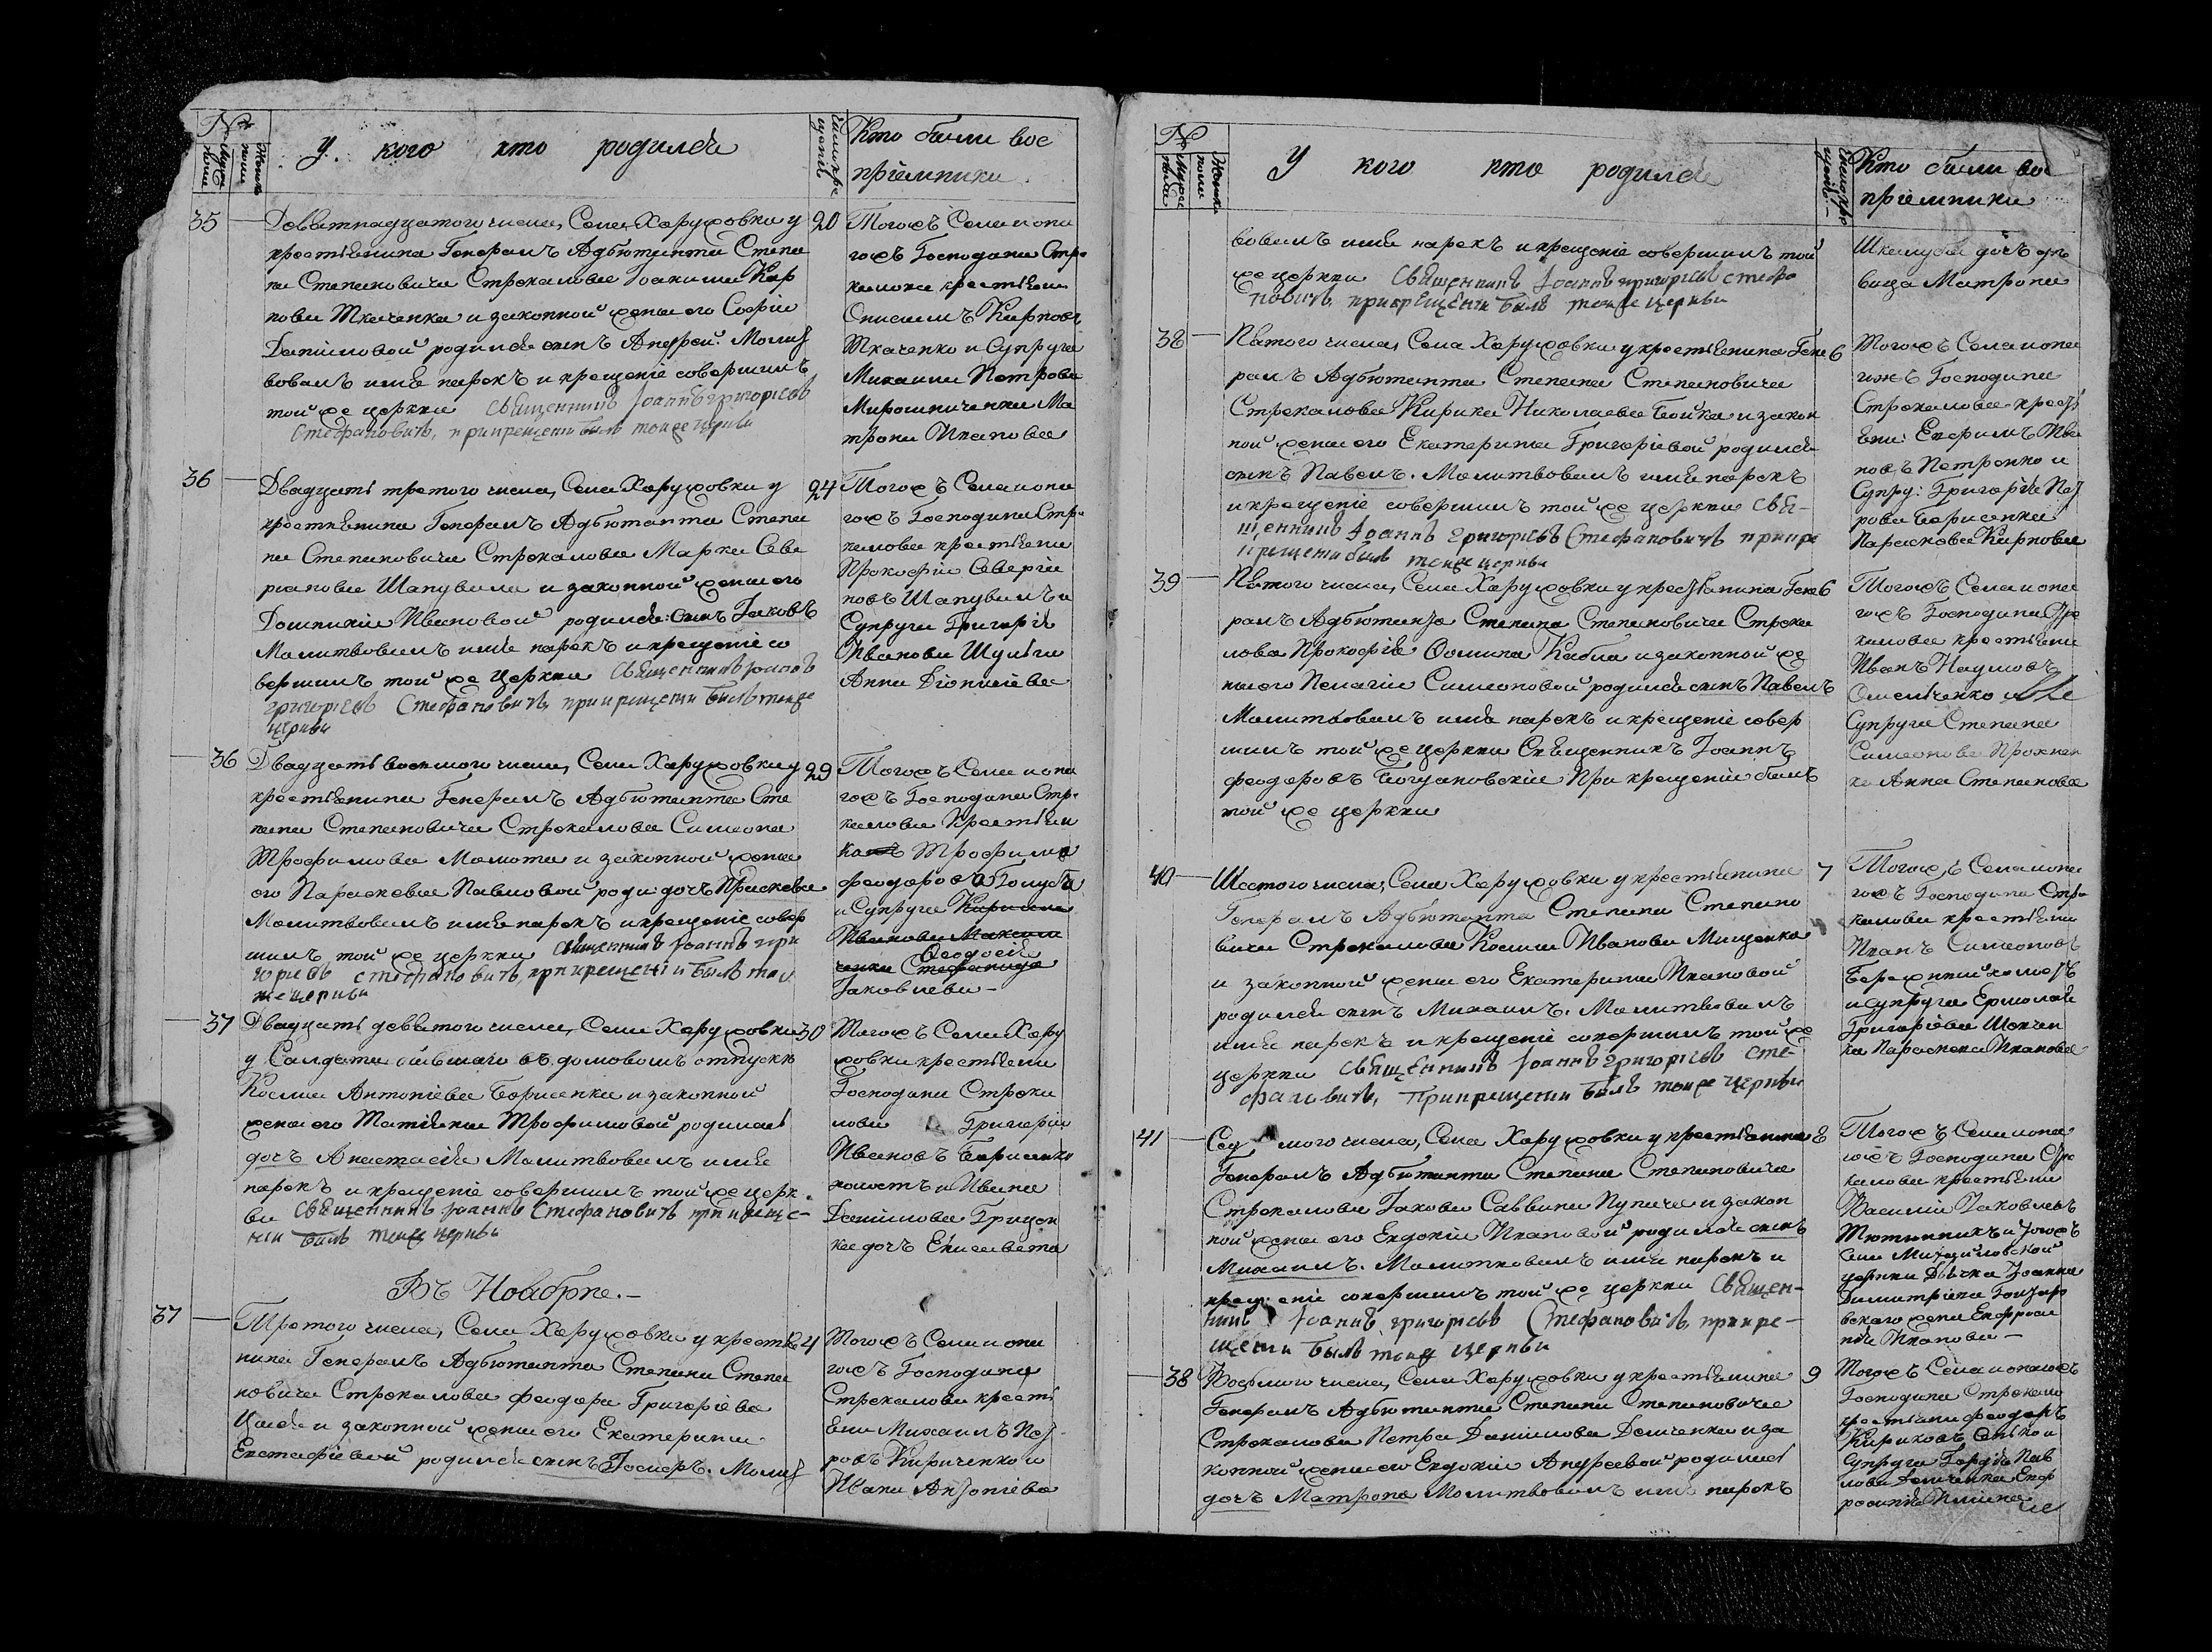 №
Мужес
кои
Женск
кои
У кого кто родился
Число кре
щенія
Кто были вос
пріемники
35 Девятнадцатого числа, Села Харуховки у 20
крестьянина Генералъ Адъютанта Степа
на Степановича Стрекалова Іоакима Кар
пова Ткаченка и законной жены его Софіи
Даниловой родился сынъ Андрей. Молит
вовалъ имя нарекъ и крещеніе совершилъ
той же церкви Священникъ Іоаннъ Григорьевъ
Стефановичъ, при крещении былъ тойже церкви
Тогожъ Села и она
гожъ Господина Стре
калова крестьяне
Карповъ
Ткаченко и Супруга
Михаила Петрова
Мирошниченка Ма
трона Иванова
36 Двадцать третого числа, Села Харуховки у 24
крестьянина Генералъ Адъютанта Степа
на Степановича Стрекалова Марка Севе
рианова Шаповала и законной жены его
Домникии Ивановой родился сынъ Іаковъ
Молитвовалъ имя нарекъ и крещеніе со
вершилъ той же Церкви Священникъ Іоаннъ
Григорьевъ Стефановичъ, при крещении былъ тойже
церкви
Тогожъ Села и она
гожъ Господина Стре
калова крестьяне
Прокофій Севериа
новъ Шаповалъ и
Супруга Григорія
Иванова Шульги
Анна Діонисіева
36 Двадцать восьмого числа, Села Харуховки у 29
крестьянина Генералъ Адъютанта Сте
пана Степановича Стрекалова Симеона
Трофимова Момота и законной жены
его Параскевы Павловой роди: дочь Праскева
Молитвовалъ имя нарекъ и крещеніе совер
шилъ той же церкви Священникъ Іоаннъ Гри
горьевъ Стефановичъ, при крещеніи былъ той
же церкви
Тогожъ Села и она
гожъ Господина Стре
калова Крестьян
Трофима
Феодорова
и Супруга Кирилла
Иванова Максим
ченка Стефанида
Феодосія
Іаковлева -
37 Двадцать девятого числа, Села Харуховки 30
у Салдата бывшаго въ домовомъ отпуске
Космы Антоніева Борисенка и законной
жены его Татіяны Трофимовой родилась
дочъ Анастасія Молитвовалъ имя
нарекъ и крещеніе совершилъ той же церк
ви Священникъ Іоаннъ Стефановичъ при креще-
нии былъ тойже церкви
Тогожъ Села Хару
ховки крестьяне
Господина Стрека
лова Григорій
Ивановъ Борисенко
холостъ и Ивана
Данилова Грицен
ка дочъ Елисавета
Въ Ноябрѣ.-
37 Третого числа, Села Харуховки у крестья 4
нина Генералъ Адъютанта Степана Степа
новича Стрекалова Феодора Григоріева
и законной жены его Екатерины
Евстафіевой родился сынъ Іосифъ. Молит
Тогожъ Села и она
гожъ Господина
Стрекалова кресть
яне Михаилъ Пет
ровъ Кириченко и
Ивана Антоніева
№
Мужес
кои
Женск
кои
У кого кто родился
Число кре
щенія
Кто были вос
пріемники
вовалъ имя нарекъ и крещеніе совершилъ той
же церкви Священникъ Іоаннъ Григорьевъ Стефа
новичъ, при крещении былъ тойже церкви
дочъ дѣ
вица Матрона
38 Пятого числа, Села Харуховки у крестьянина Гене 6
ралъ Адъютанта Степана Степановича
Стрекалова Кирика Николаева Бойка и закон
ной жены его Екатерины Григоріевой родился
сынъ Павелъ. Молитвовалъ имя нарекъ
и крещеніе совершилъ той же церкви Свя-
щенникъ Іоаннъ Григорьевъ Стефановичъ при кре
щении былъ тойже церкви
Тогожъ Села и она
гожъ Господина
Стрекалова кресть
яне: Ефремъ Ива
новъ Петренко и
Супру: Григорія Пет
рова Борисенка
Параскева Карпова
39 Пятого числа, Села Харуховки у крестьянина Гене 6
ралъ Адъютанта Степана Степановича Стрека
лова Прокофія Фомина Кабла и законной же
ны его Пелагіи Симеоновой родился сынъ Павелъ
Молитвовалъ имя нарекъ и крещеніе совер
шилъ той же церкви Священникъ Іоаннъ
Феодоровъ Богдановскій При крещеніи былъ
той же церкви
Тогожъ Села и она
гожъ Господина Стре
калова крестьяне
Иванъ Наумовъ
Омельченко и
Супруга Степана
Симеонова
ка Анна Степанова
40 Шестого числа, Села Харуховки у крестьянина 7
Генералъ Адъютанта Степана Степано
вича Стрекалова Космы Иванова Мищенка
и законной жены его Екатерины Ивановой
родился сынъ Михаилъ. Молитвовалъ
имя нарекъ и крещеніе совершилъ той же
церкви Священникъ Іоаннъ Григорьевъ Сте-
фановичъ, При крещении былъ тойже церкви
Тогожъ Села и она
гожъ Господина Стре
калова крестьяне
Иванъ Симеоновъ
холостъ
и супруга Ермолая
Григоріева Шевчен
ка Параскева Иванова
41 Седьмого числа, Села Харуховки у крестьянина 8
Генералъ Адъютанта Степана Степановича
Стрекалова Іакова Саввина Пупича и закон
ной жены его Евдокіи Ивановой родился сынъ
Михаилъ. Молитвовалъ имя нарекъ и
крещеніе совершилъ той же церкви Священ-
никъ Іоаннъ Григорьевъ Стефановичъ, при кре-
щении былъ тойже церкви
Тогожъ Села и она
гожъ Господина Стре
калова крестьяне
Василій Іаковлевъ
Тютюнникъ и тогожъ
села Михайловской
церкви Дьячка Іоанна
Димитріева
жена Евфроси
нія Иванова -
38 Восьмого числа, Села Харуховки у крестьянина 9
Генералъ Адъютанта Степана Степановича
Стрекалова Петра Данилова Демченка и за
конной жены его Евдокіи Андреевой родилась
дочъ Матрона Молитвовалъ имя нарекъ
Тогожъ Села и оногожъ
Господина Стрекало
крестьяне Феодоръ
Кириковъ
Супруга Гордія Пав
лова Демченка Евф
росинія